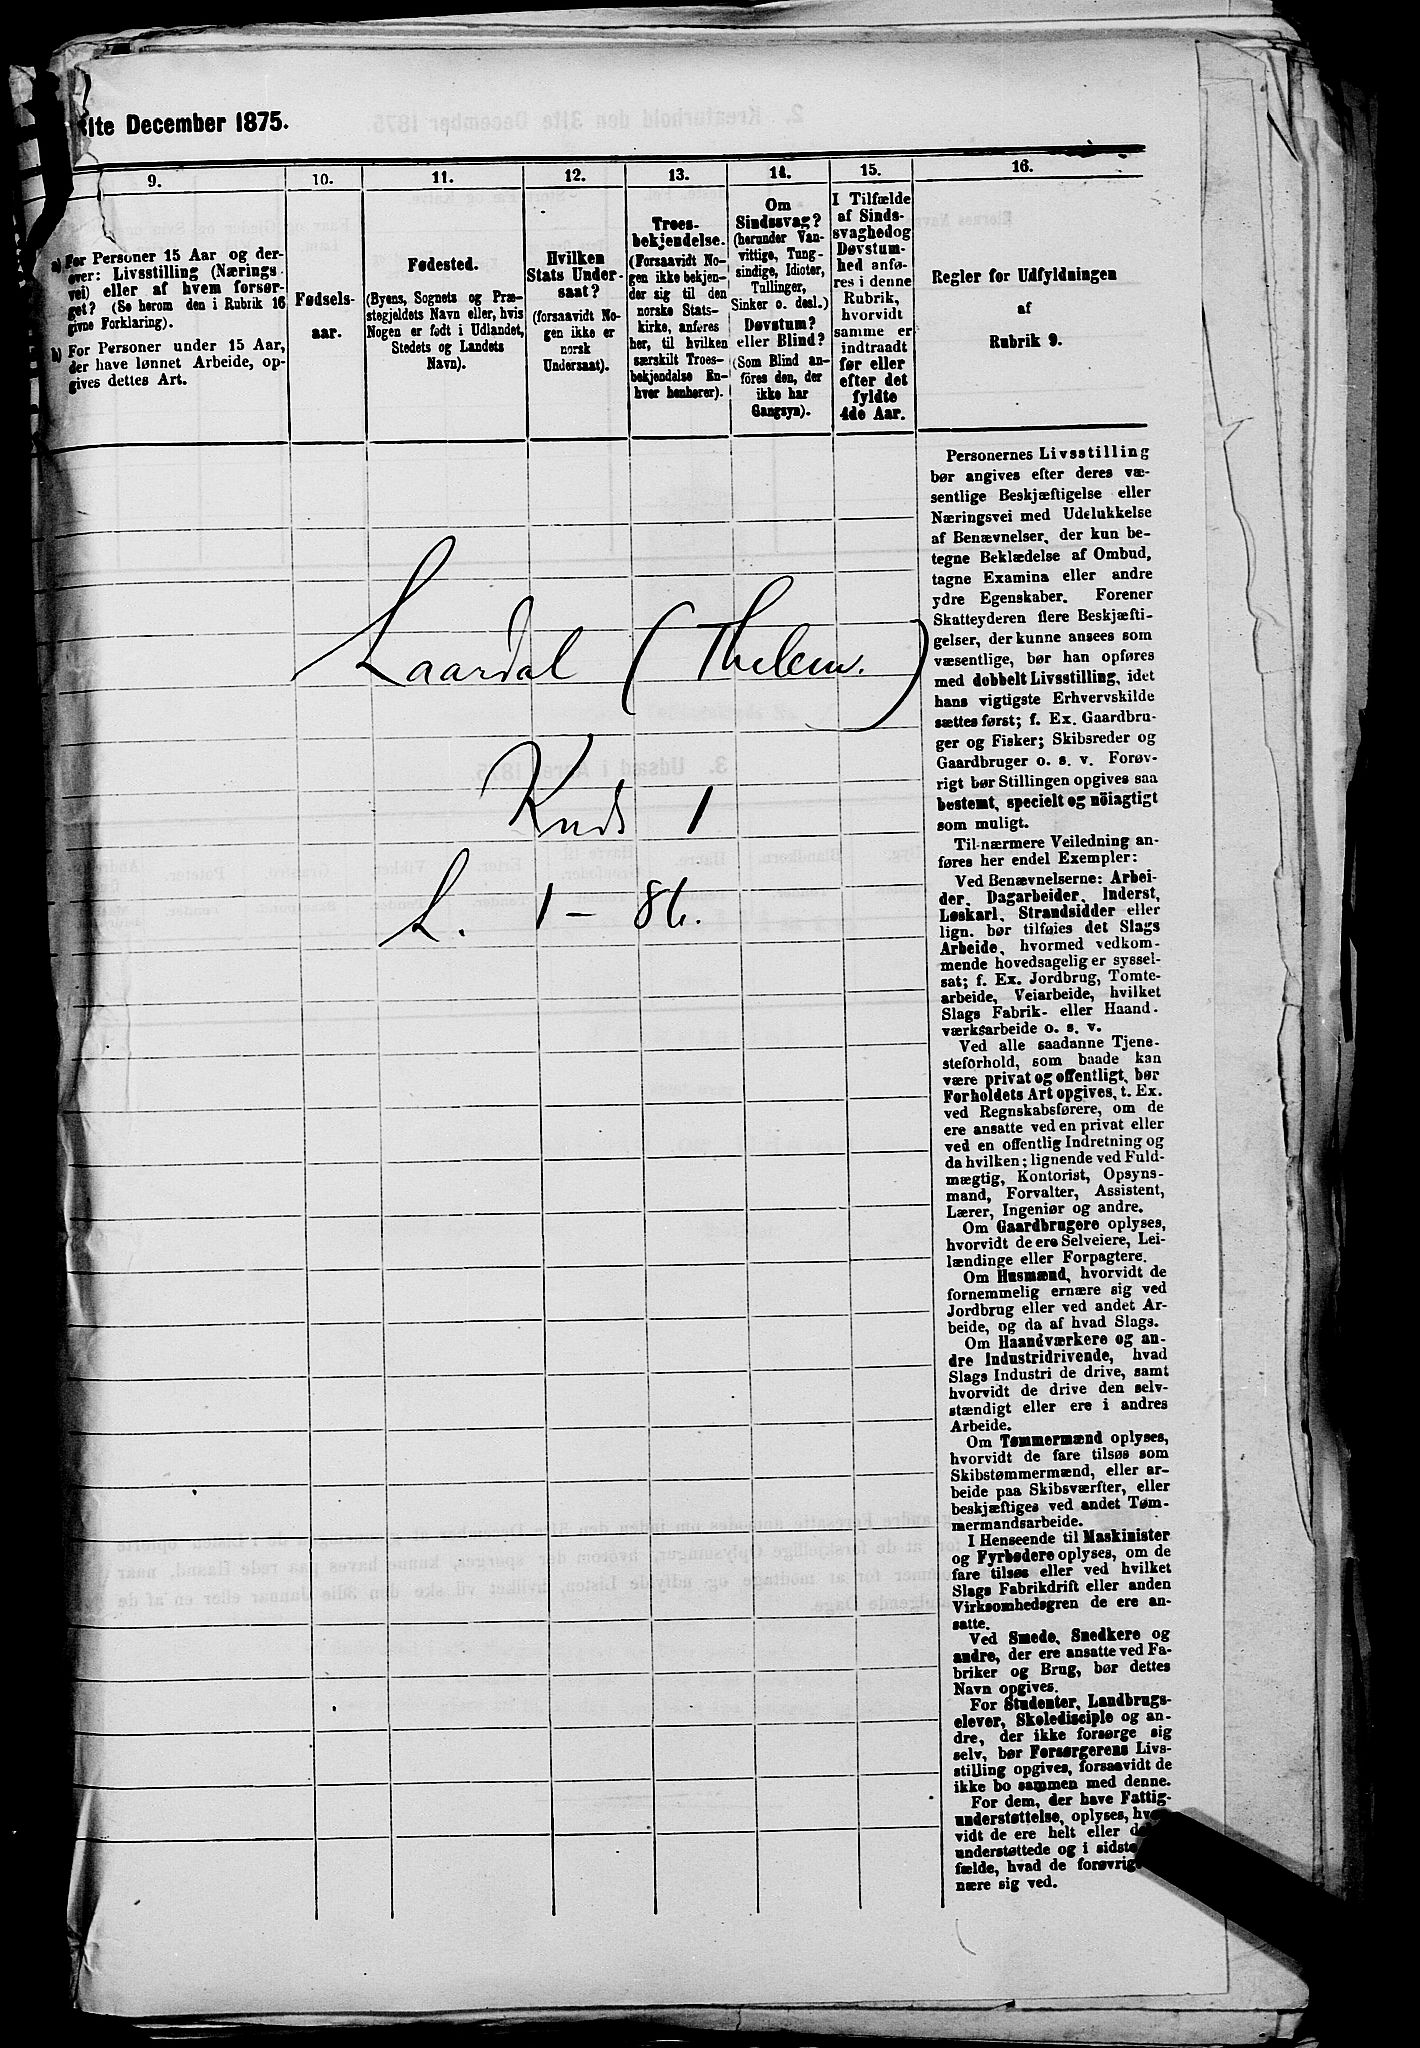 31te December 1875.
9.
a) For Personer 15 Aar og der-
over: Livsstilling (Nærings-
vei) eller af hvem forsør-
get? (Se herom den i Rubrik 16
givne Forklaring).
b) For Personer under 15 Aar,
der have lønnet Arbeide, op-
gives dettes Art.
10.
Fødsels-
aar.
11.
Fødested.
(Byens, Sognets og Præ-
stegjeldets Navn eller, hvis
Nogen er født i Udlandet,
Stedets og Landets
Navn).
12.
Hvilken
Stats Under-
saat?
(forsaavidt No-
gen ikke er
norsk
Undersaat).
13.
Troes-
bekjendelse.
(Forsaavidt No-
gen ikke bekjen-
der sig til den
norske Stats-
kirke, anføres
her, til hvilken
særskilt Troes-
bekjendelse En-
hver henhører).
14.
Om
Sindssvag?
(herunder Van-
vittige, Tung-
sindige, Idioter,
Tullinger,
Sinker o. desl.)
Døvstum?
eller Blind?
(Som Blind an-
føres den, der
ikke har
Gangsyn).
15.
I Tilfælde
af Sinds-
svaghed og
Døvstum-
hed anfø-
res i denne
Rubrik,
hvorvidt
samme er
indtraadt
før eller
efter det
fyldte
4de Aar.
16.
Regler for Udfyldningen
af
Rubrik 9.
Laardal (Thelem.)
Kuds 1
L. 1 - 86.
Personernes Livsstilling
bør angives efter deres væ-
sentlige Beskjæftigelse eller
Næringsvei med Udelukkelse
af Benævnelser, der kun be-
tegne Beklædelse af Ombud,
tagne Examina eller andre
ydre Egenskaber. Forener
Skatteyderen flere Beskjæfti-
gelser, der kunne ansees som
væsentlige, bør han opføres
med dobbelt Livsstilling, idet
hans vigtigste Erhvervskilde
sættes først; f. Ex. Gaardbru-
ger og Fisker; Skibsreder og
Gaardbruger o. s. v. Forøv-
rigt bør Stillingen opgives saa
bestemt, specielt og nöiagtigt
som muligt.
Til nærmere Veiledning an-
føres her endel Exempler:
Ved Benævnelserne: Arbei-
der, Dagarbeider, Inderst,
Løskarl, Strandsidder eller
lign. bør tilføies det Slags
Arbeide, hvormed vedkom-
mende hovedsagelig er syssel-
sat; f. Ex. Jordbrug, Tomte-
arbeide, Veiarbeide, hvilket
Slags Fabrik- eller Haand-
værksarbeide o. s. v.
Ved alle saadanne Tjene-
steforhold, som baade kan
være privat og offentligt, bør
Forholdets Art opgives, t. Ex.
ved Regnskabsførere, om de
ere ansatte ved en privat eller
ved en offentlig Indretning og
da hvilken; lignende ved Fuld-
mægtig, Kontorist, Opsyns-
mand, Forvalter, Assistent,
Lærer, Ingeniør og andre.
Om Gaardbrugere oplyses,
hvorvidt de ere Selveiere, Lei-
lændinge eller Forpagtere.
Om Husmænd, hvorvidt de
fornemmelig ernære sig ved
Jordbrug eller ved andet Ar-
beide, og da af hvad Slags.
Om Haandværkere og an-
dre Industridrivende, hvad
Slags Industri de drive, samt
hvorvidt de drive den selv-
stændigt eller ere i andres
Arbeide.
Om Tømmermænd oplyses,
hvorvidt de fare tilsøs som
Skibstømmermænd, eller ar-
beide paa Skibsværfter, eller
beskjæftiges ved andet Tøm-
mermandsarbeide.
I Henseende til Maskinister
og Fyrbødere oplyses, om de
fare tilsøs eller ved hvilket
Slags Fabrikdrift eller anden
Virksomhedsgren de ere an-
satte.
Ved Smede, Snedkere og
andre, der ere ansatte ved Fa-
briker og Brug, bør dettes
Navn opgives.
For Studenter, Landbrugs-
elever, Skoledisciple og an-
dre, der ikke forsørge sig
selv, bør Forsørgerens Livs-
stilling opgives, forsaavidt de
ikke bo sammen med denne.
For dem, der have Fattig-
understøttelse, oplyses,
vidt de ere helt eller
understøttede og i
fælde, hvad de
nære sig ved.